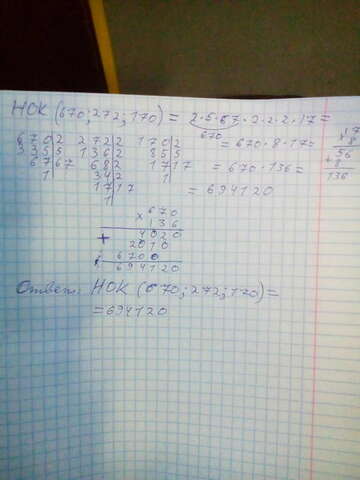 НОК (670;272;170) = 2·5·67·2·2·2·17=
670
670|2 272|2 170|2 = 670·8·17=
335|5 136|2 85|5
67|67 68|2 17|17 = 670·136=
1 34|2 1
17|17 = 694120
1
×17
8
56
+8
136
×670
136
4020
+2010
670
694120
Ответ: НОК (670;272;170)=
=694120